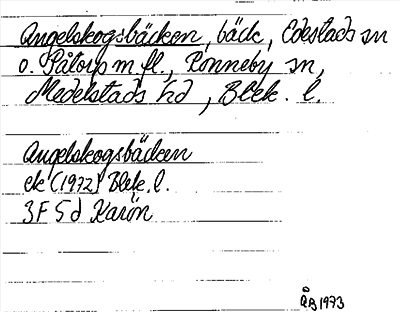 Angelskogsbäcken, bäck, Edestads sn
o. Påtorp m fl., Ronneby sn,
Medelstads hd, Blek. l.
Angelskogsbäcken
ek (1972) Blek. l.
3F 5d Karön
ÅB 1973